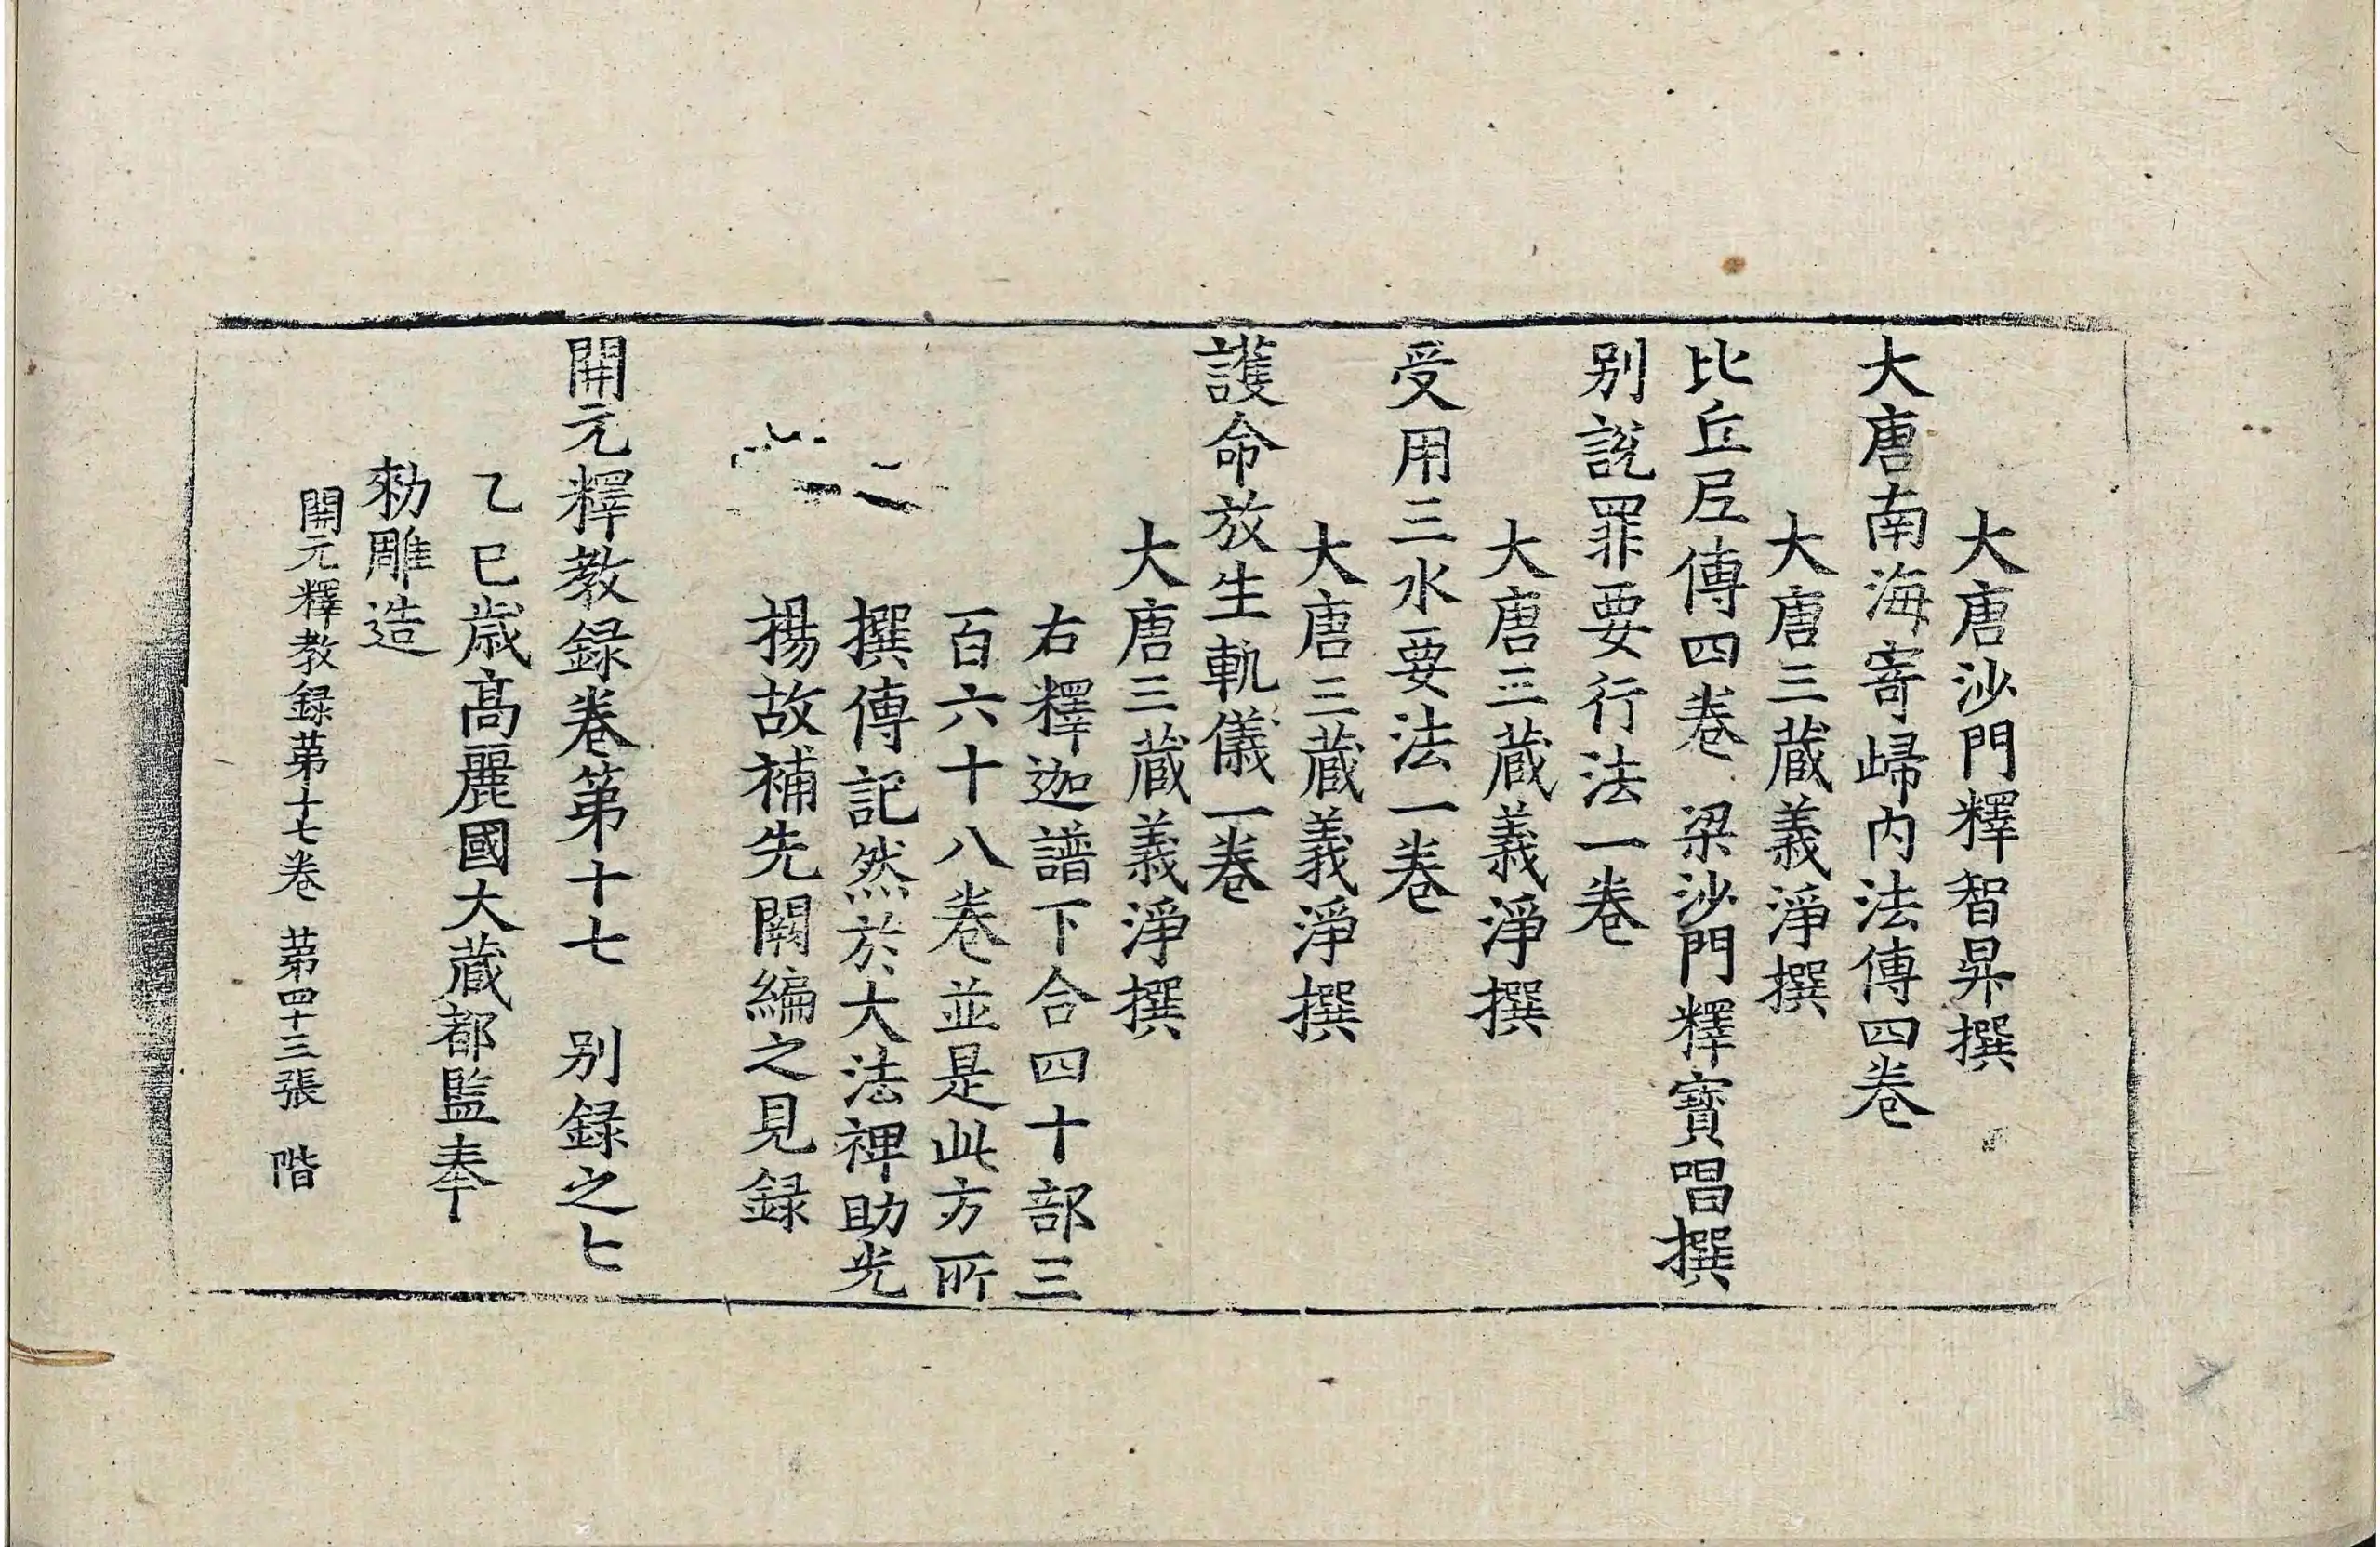 大唐沙門釋智昇撰
大唐南海寄歸内法傳四卷
大唐三藏義淨撰
比丘尼傳四卷 梁沙門釋寶唱撰
别說罪要行法一卷
大唐三藏義淨撰
受用三水要法一卷
大唐三藏義淨撰
護命放生軌儀一卷
大唐三藏義淨撰
右釋迦譜下合四十部三
百六十八卷並是此方所
撰傳記然於大法裨助光
揚故補先闕編之見録
開元釋教録卷第十七 别録之七
乙巳歲高麗國大藏都監奉
勑雕造
開元釋教録第十七卷 第四十三張 階